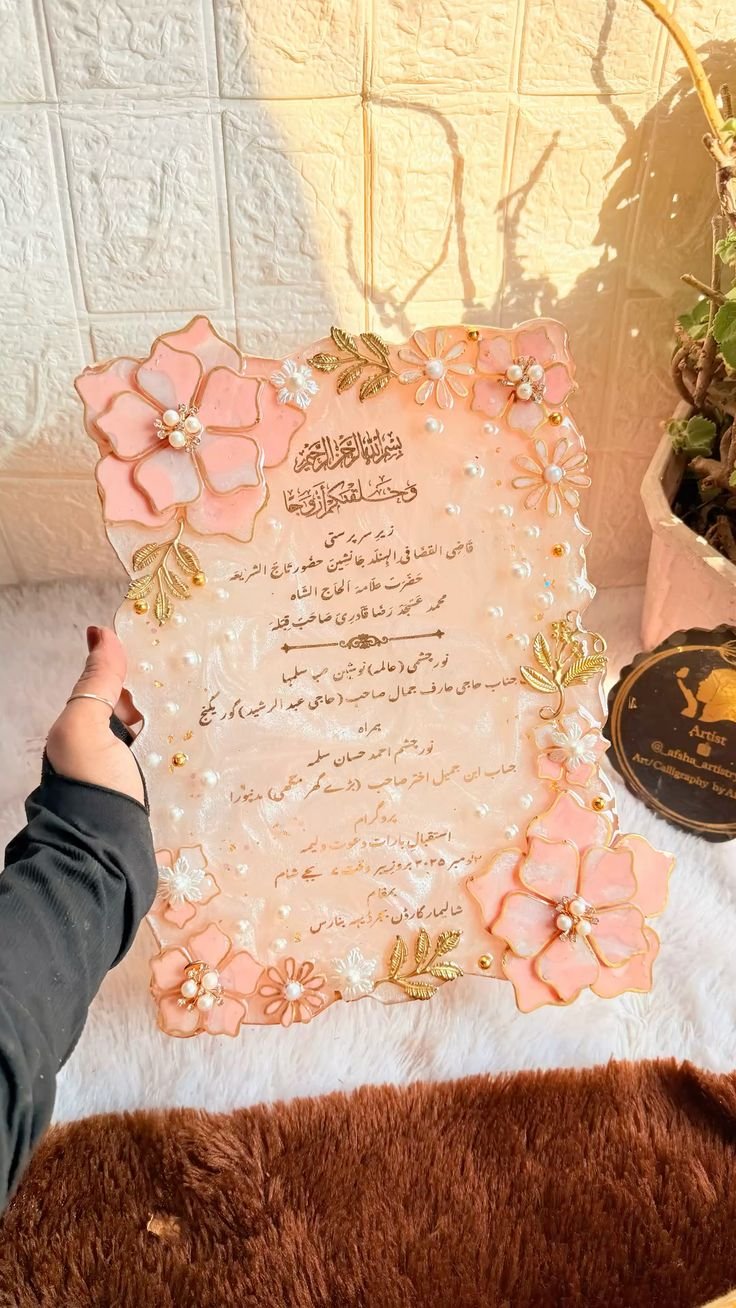 بسم الله الرحمن الرحيم
وخلقنكم أزواجا
زیر سرپرستی
قاضی القضا فی الہند جانشین حضور تاج الشریعہ
حضرت علامہ الحاج الشاہ
محمد عسجد رضا قادری صاحب قبلہ
نور چشمی (عالمہ) نوشین صبا سلمہا
جناب حاجی عارف جمال صاحب (حاجی عبد الرشید) گوریگنج
ہمراہ
نور چشم احمد حسان سلمہ
جناب ابن جمیل اختر صاحب (بڑے گھر مچھی) مدنپورا
پروگرام
استقبال بارات دعوت ولیمہ
نومبر ۲۰۲۵ بروز پیر وقت ۷ بجے شام
بمقام
شالیمار گارڈن بنارس
Artist
@_afsha_artistry
Art/Calligraphy by A